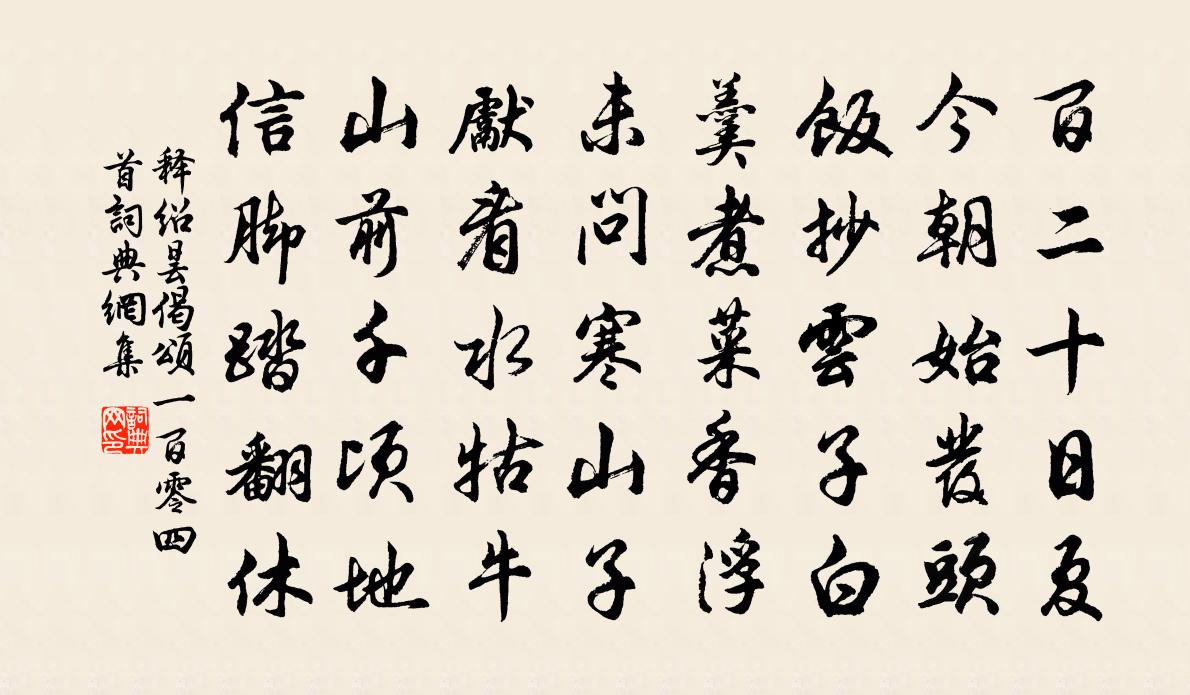 百二十日夏
今朝始發頭
飯抄雲子白
羹煮菜香浮
未問寒山子
獻看水牯牛
山前千頃地
信脚踏翻休
释绍昙偈頌一百零四
首詞典網集
詞典网印